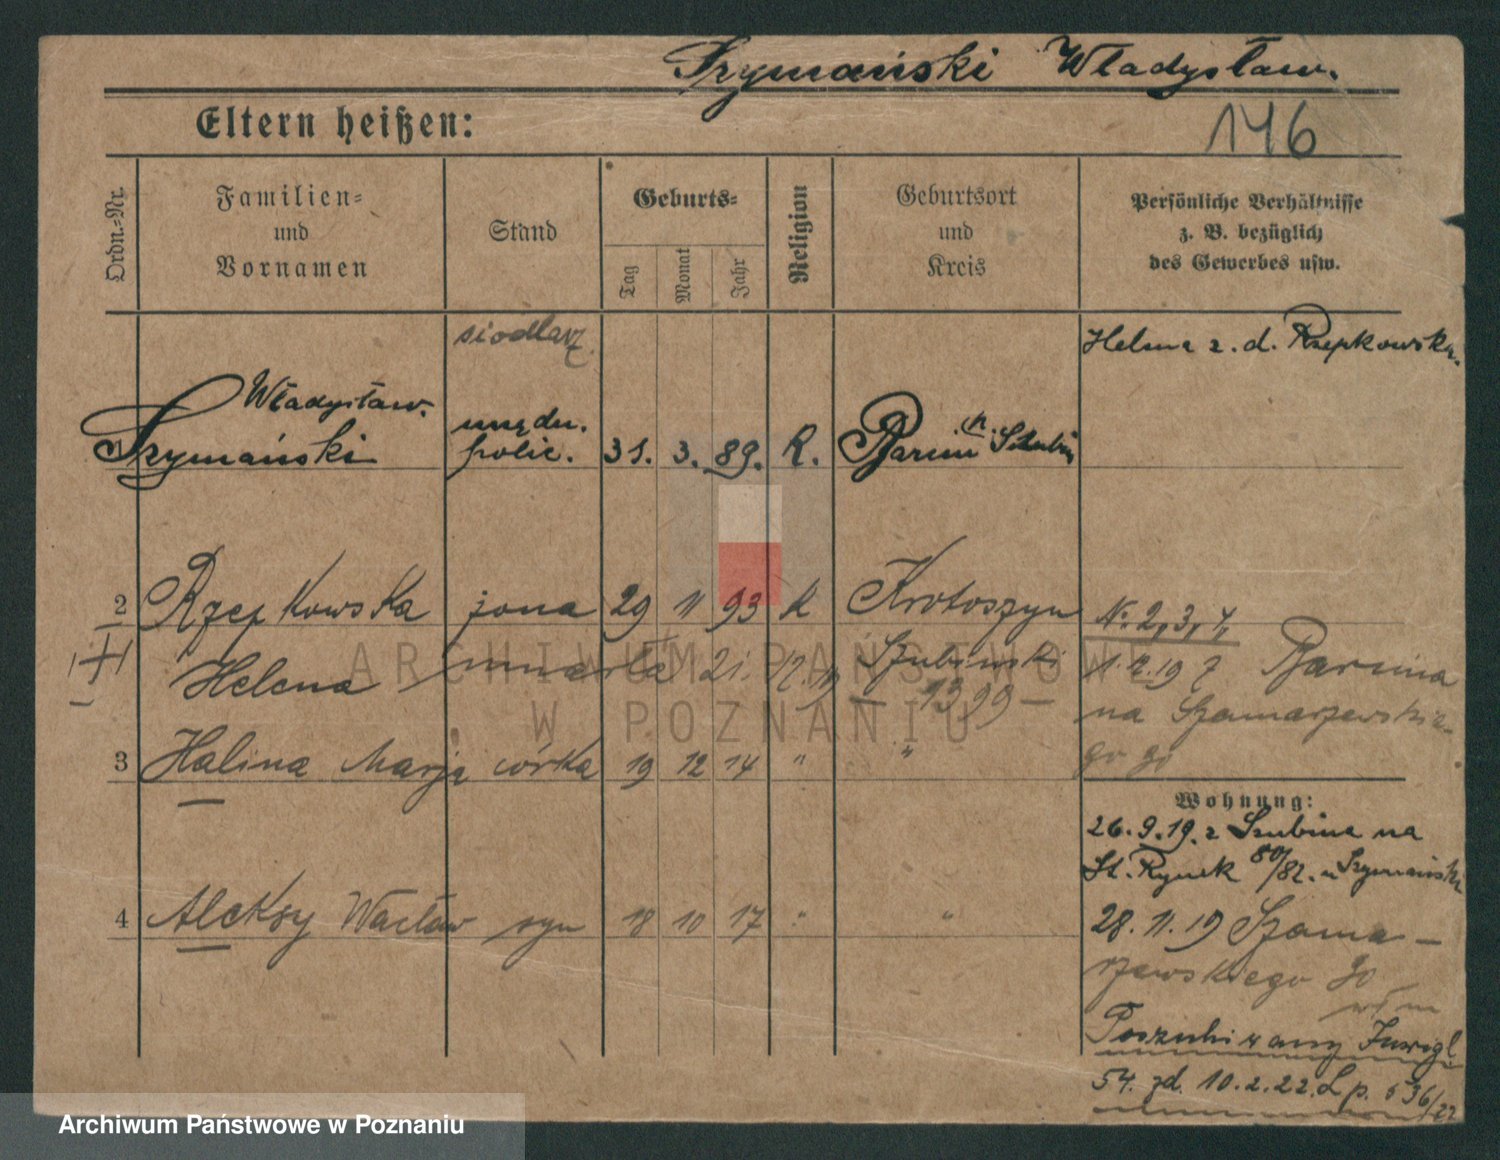 Szymański Władysław.
Eltern heißen:
146
Ordn.-Nr.
Familien-
und
Vornamen
Stand
Geburts-
Tag
Monat
Jahr
Religion
Geburtsort
und
Kreis
Persönliche Verhältnisse
z. B. bezüglich
des Gewerbes usw.
siodlarz.
Helena z. d. Rzepkowska.
Władysław.
Szymański
urzędn.
polic.
31. 3. 89. R. Barcin p. Szubin
2 Rzepkowska żona 29 11 93 K Krotoszyn
Helena umarła 21. 12. 19 Szubinski
1399
No. 2, 3, 4,
z Barcina
na Szamarzewskie-
go 90
3 Halina Marja córka 19 12 14 " "
Wohnung:
26. 9. 19. z Szubina na
St. Rynek 80/82. u Szymański
4 Aleksy Wacław syn 18 10 17 " "
28. 11. 19 Szama-
rzewskiego 90
Poszukiwany Inwigl.
54. zd. 10. 2. 22. L p. 536/22
ARCHIWUM PAŃSTWOWE
W POZNANIU
Archiwum Państwowe w Poznaniu